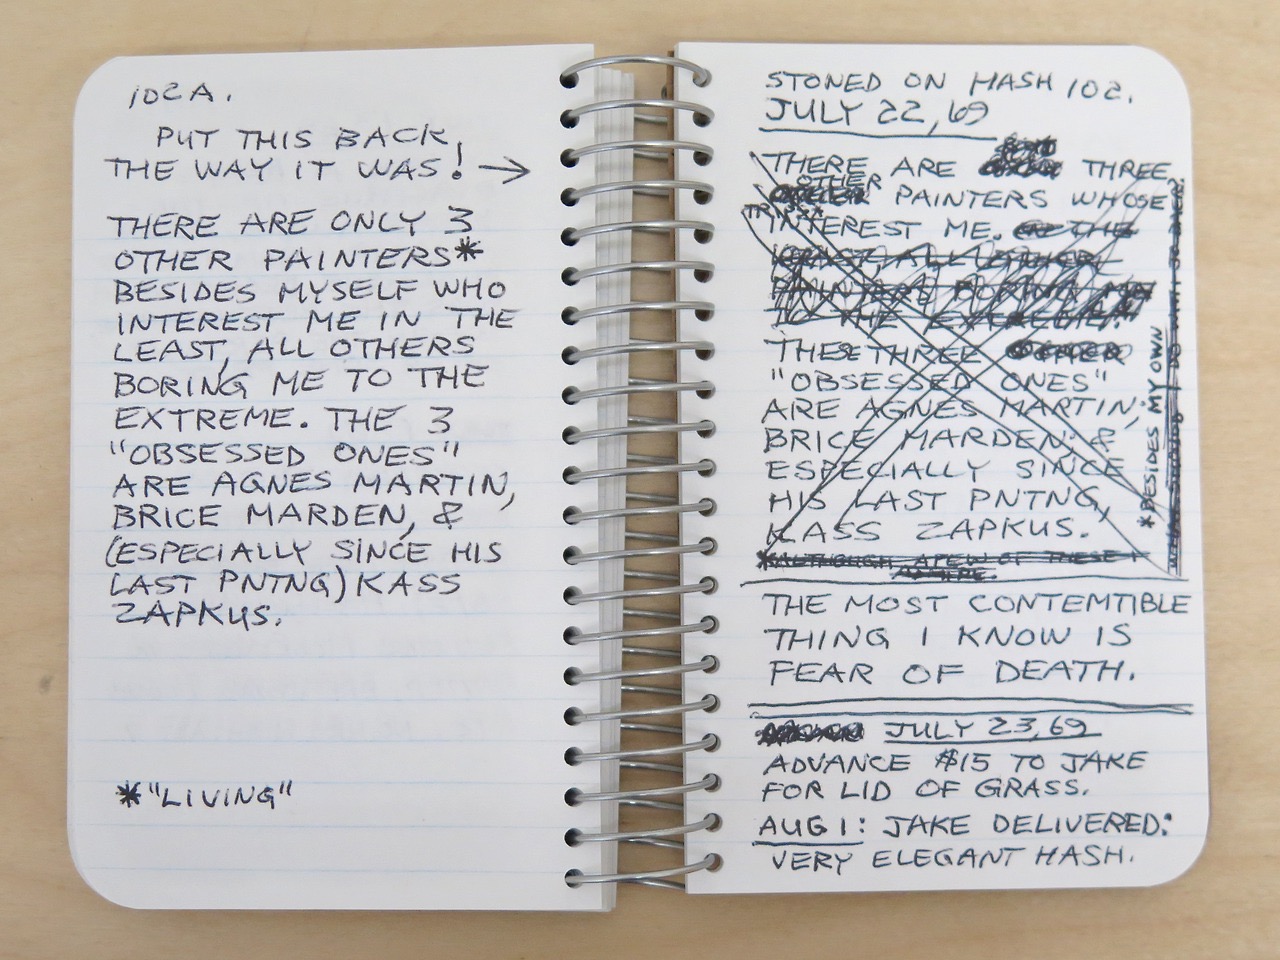 102A.
PUT THIS BACK,
THE WAY IT WAS! →
THERE ARE ONLY 3
OTHER PAINTERS*
BESIDES MYSELF WHO
INTEREST ME IN THE
LEAST, ALL OTHERS
BORING ME TO THE
EXTREME. THE 3
"OBSESSED ONES"
ARE AGNES MARTIN,
BRICE MARDEN, &
(ESPECIALLY SINCE HIS
LAST PNTNG) KASS
ZAPKUS.
*"LIVING"
STONED ON HASH 102.
JULY 22, 69
THERE ARE THREE
OTHER PAINTERS WHOSE
INTEREST ME. THE
LEAST, ALL OTHER
PAINTERS BORING ME
TO THE EXTREME."
THESE THREE
"OBSESSED ONES"
ARE AGNES MARTIN;
BRICE MARDEN; &
ESPECIALLY SINCE
HIS LAST PNTNG,
KASS ZAPKUS.
*ALTHOUGH A FEW OF THESE
*BESIDES MY OWN
THE MOST CONTEMTIBLE
THING I KNOW IS
FEAR OF DEATH.
JULY 23, 69
ADVANCE $15 TO JAKE
FOR LID OF GRASS.
AUG 1: JAKE DELIVERED:
VERY ELEGANT HASH.